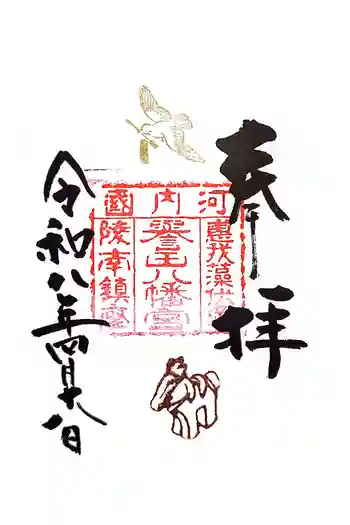 奉拝
河内國
惠我藻伏
譽田八幡宮
陵南鎮
令和八年四月十八日